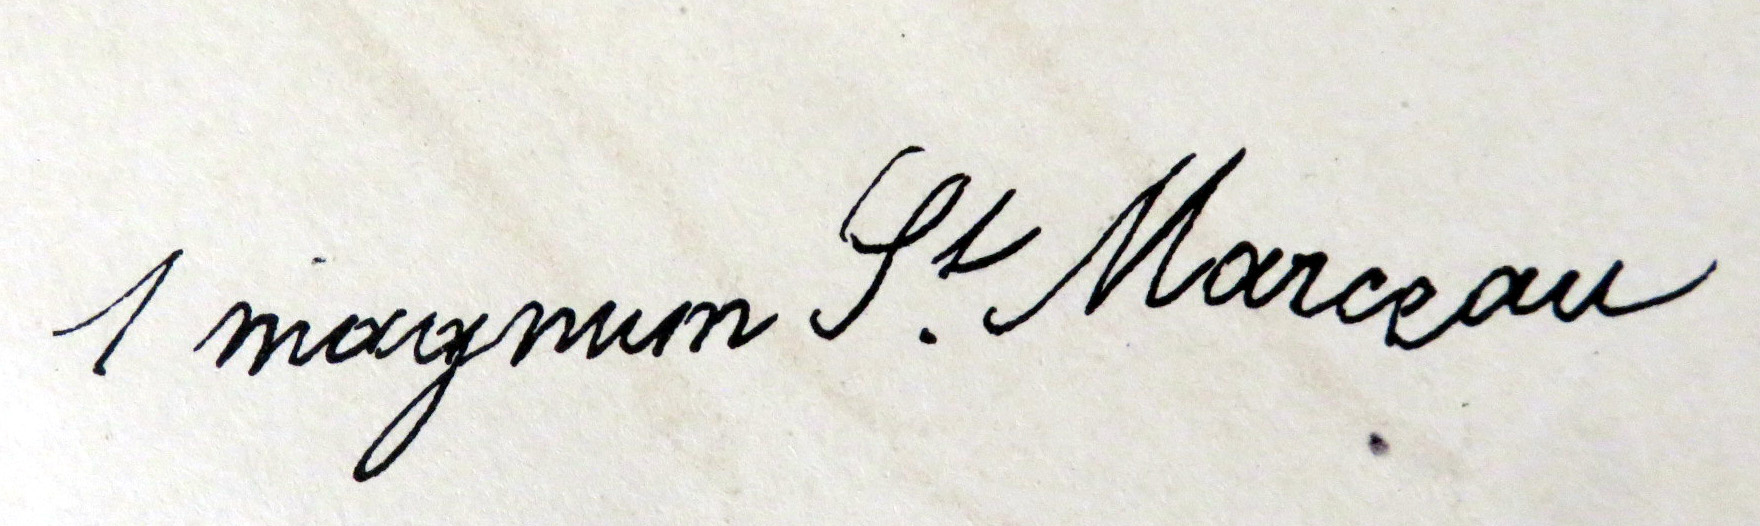 1 magnum St. Marceau